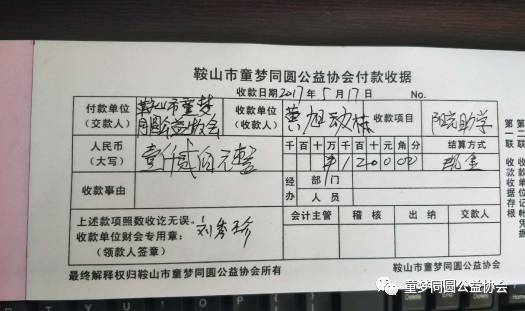 鞍山市童梦同圆公益协会付款收据
收款日期 2017 年 5 月 17 日 No.
付款单位 鞍山市童梦同圆公益协会 收款单位 黄旭 收款项目 阳光助学
(交款人) (收款人)
人民币 壹仟贰佰元整 千 百 十 万 千 百 十 元 角 分 结算方式
(大写) ¥ 1 2 0 0 0 0 现金
收款事由 经办 部门
人员
上述款项照数收讫无误。 会计主管 稽核 出纳 交款人
收款单位财会专用章: 刘梦珍
(领款人签章)
最终解释权归鞍山市童梦同圆公益协会所有 鞍山市童梦同圆公益协会
第一联
存根
收款收据
记帐凭据
童梦同圆公益协会